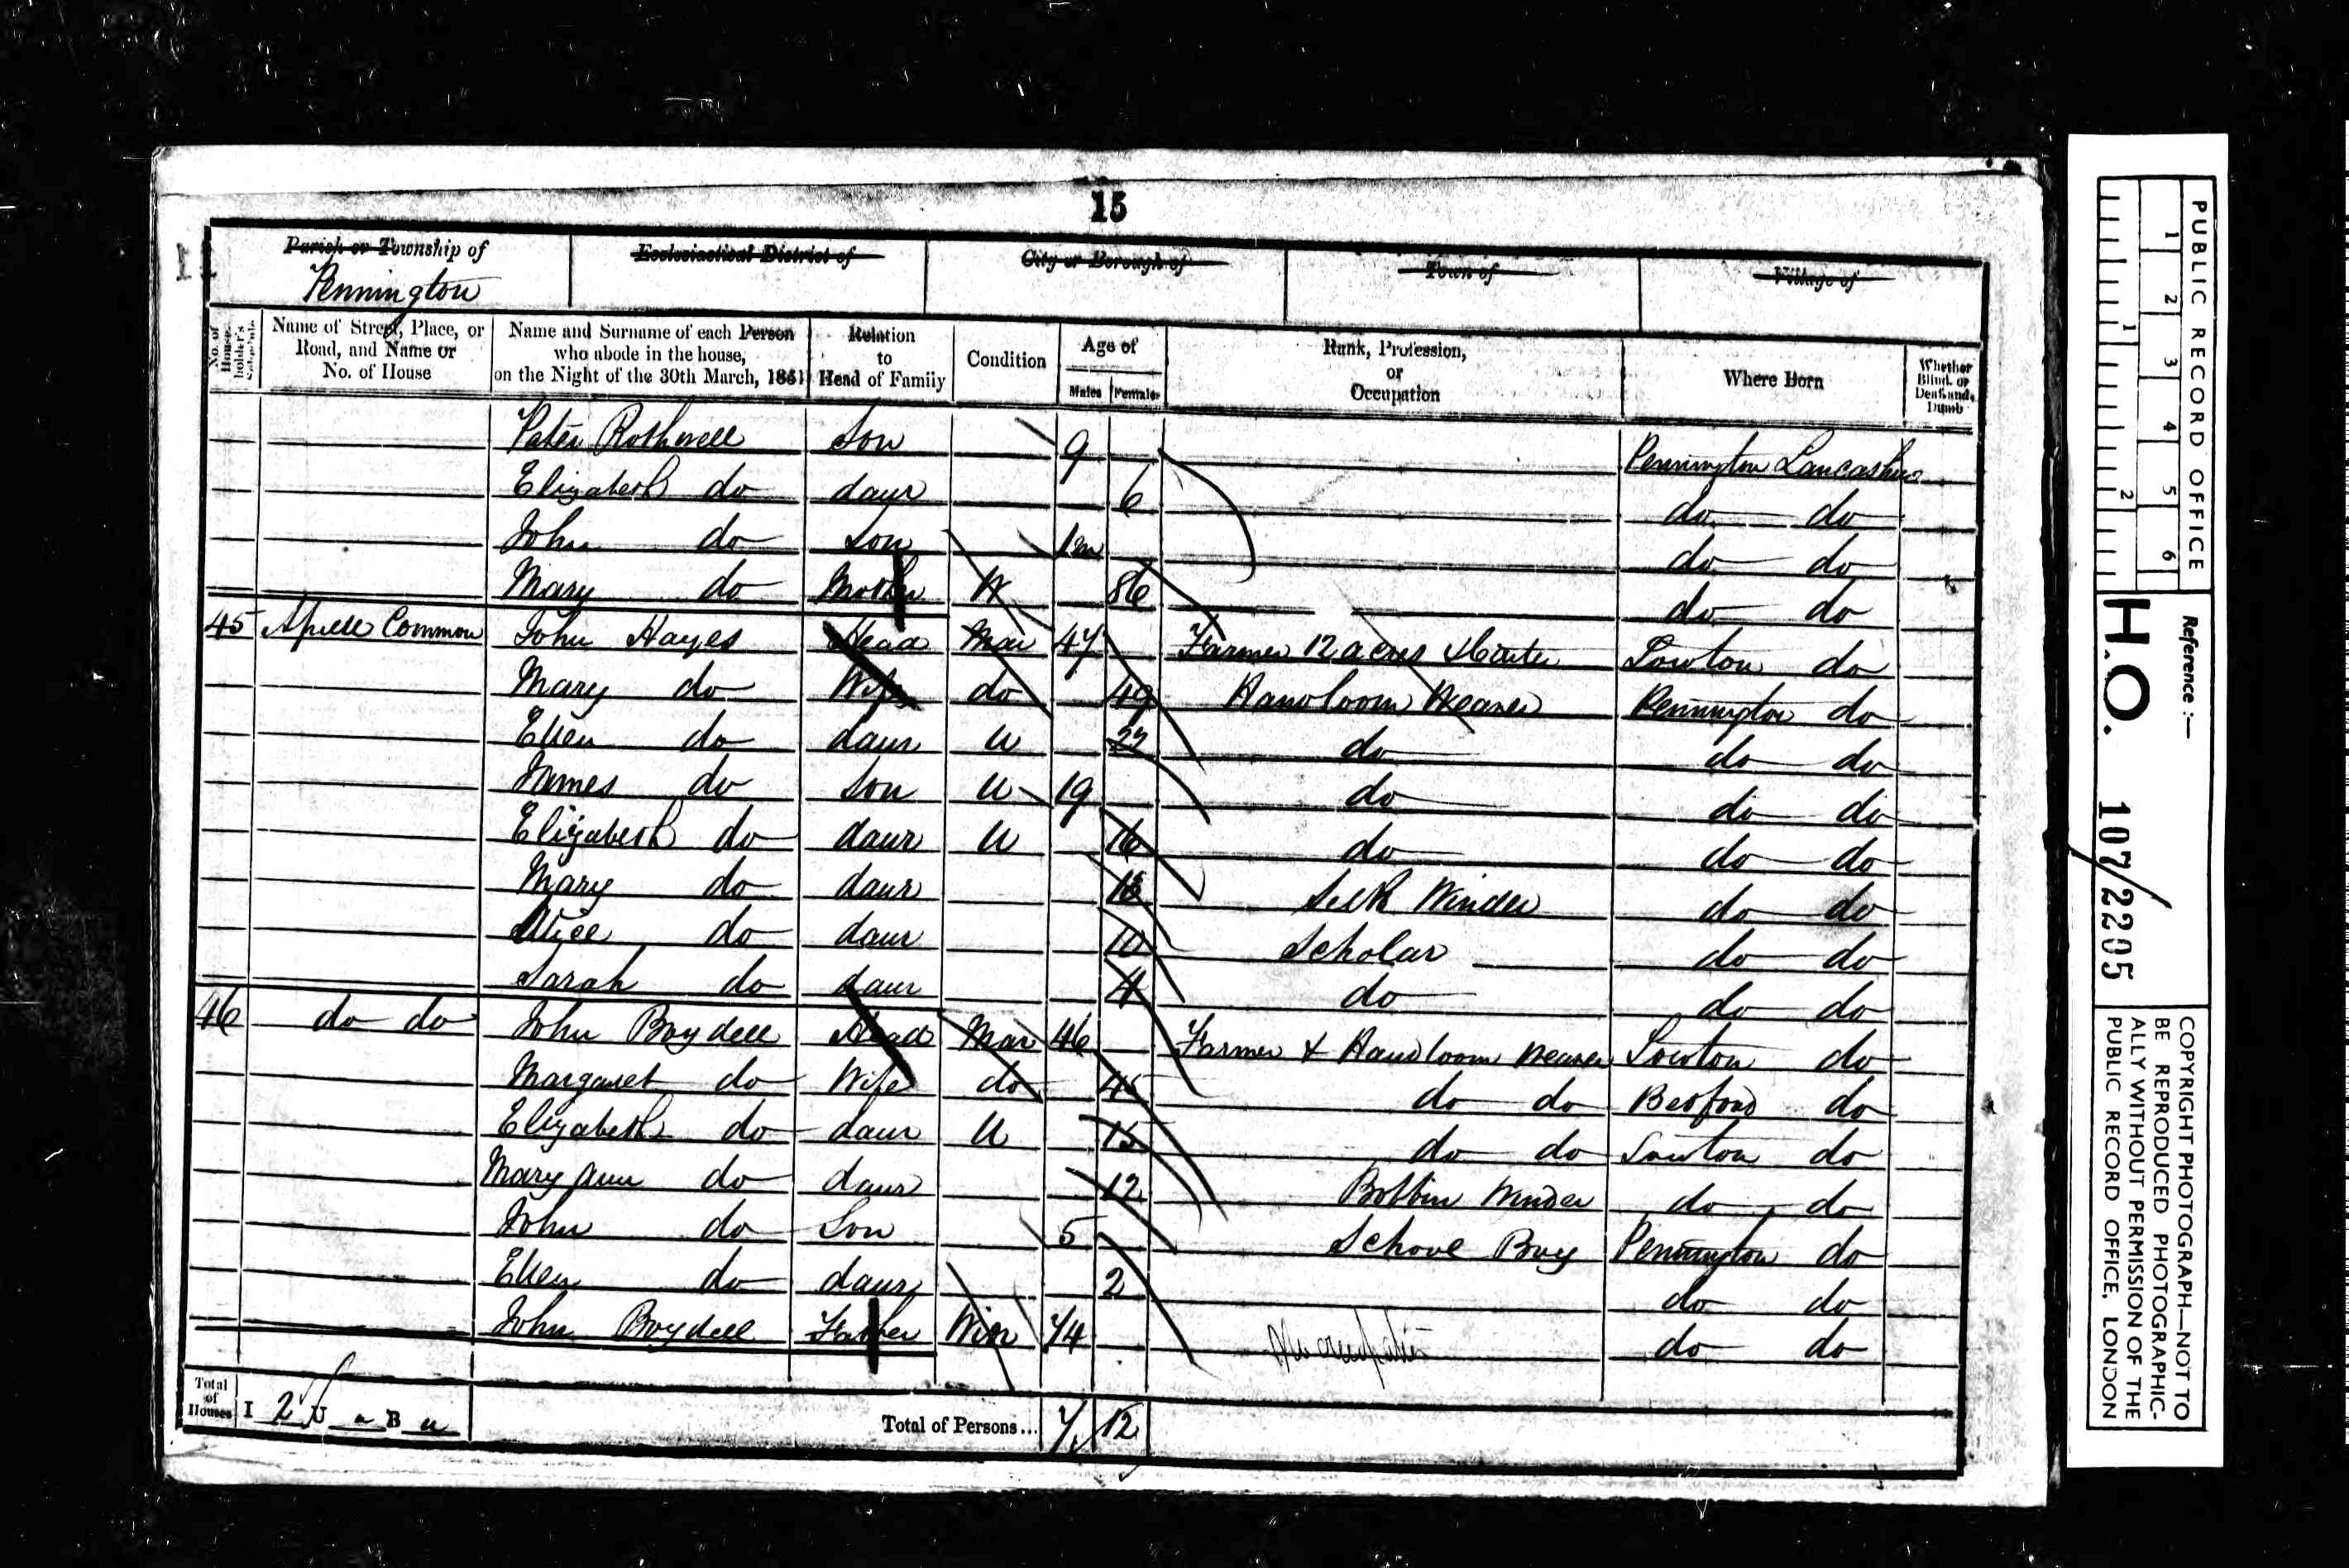 15
Parish or Township of Ecclesiastical District of City or Borough of Town of Village of
Pennington
No. of House-holder's Schedule Name of Street, Place, or Road, and Name or No. of House Name and Surname of each Person who abode in the house, on the Night of the 30th March, 1851 Relation to Head of Family Condition Age of Males Females Rank, Profession, or Occupation Where Born Whether Blind, or Deaf-and-Dumb
Peter Rothwell Son 9 Pennington Lancashire
Elizabeth do daur 6 do do
John do Son 1m do do
Mary do Mother W 86 do do
45 Common John Hayes Head Mar 47 Farmer 12 acres Lowton do
Mary do Wife do 49 Handloom Weaver Pennington do
Ellen do daur U do do do
James do Son U 19 do do do
Elizabeth do daur U 16 do do do
Mary do daur 13 Silk Winder do do
Alice do daur 10 Scholar do do
Sarah do daur 4 do do do
46 do do John Boydell Head Mar 46 Farmer & Handloom Weaver Lowton do
Margaret do Wife do 45 do do Bedford do
Elizabeth do daur U 15 do do Lowton do
Mary Ann do daur 12 Bobbin Winder do do
John do Son 5 School Boy Pennington do
Ellen do daur 2 do do
John Boydell Father Wid 74 No occupation do do
Total of Houses I 2 U B Total of Persons... 7 12
PUBLIC RECORD OFFICE
1 2 3 4 5 6
1 2
Reference :-
H.O. 107/2205
COPYRIGHT PHOTOGRAPH—NOT TO
BE REPRODUCED PHOTOGRAPHIC-
ALLY WITHOUT PERMISSION OF THE
PUBLIC RECORD OFFICE, LONDON